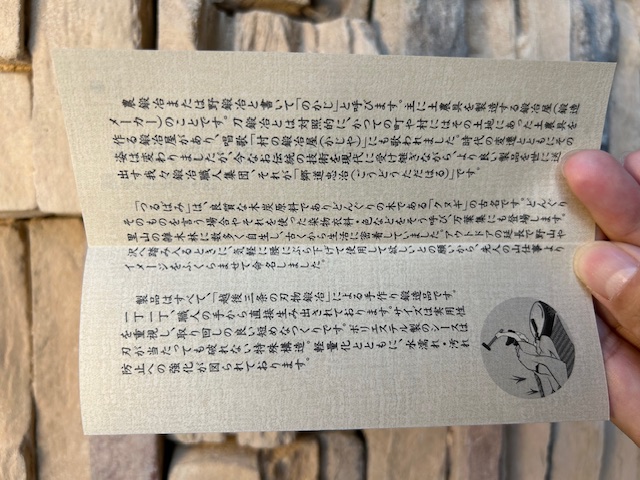 農鍛冶または野鍛冶と書いて「のかじ」と呼びます。主に土農具を製造する鍛冶屋(鍛造
メーカー)のことです。刀鍛冶とは対照的に、かつての町や村にはその土地にあった土農具を
作る鍛冶屋があり、唱歌「村の鍛冶屋(かじや)」にも歌われました。時代の変遷とともにその
姿は変わりましたが、今なお伝統の技術を現代に受け継ぎながら、より良い製品を世に送
出す我々鍛冶職人集団、それが「郷道忠治(ごうどうただはる)」です。
「つるばみ」は、良質な木炭原料でありどんぐりの木である「クヌギ」の古名です。どんぐり
そのものを言う場合やそれを使った染物衣料・色などをそう呼び万葉集にも登場します。
里山の雑木林に数多く自生し、古くから生活に密着していました。アウトドアの延長で野山や
沢へ踏み入るときに、気軽に腰にぶら下げて使用して欲しいとの願いから、先人の山仕事より
イメージをふくらませて命名しました。
製品はすべて、「越後三条の刃物鍛冶」による手作り鍛造品です。
一丁一丁、職人の手から直接生み出されております。サイズは実用性
を重視し、取り回しの良い短めなつくりです。ポリエステル製のシースは
刃が当たっても破れない特殊構造。軽量化とともに、水濡れ・汚れ
防止への強化が図られております。